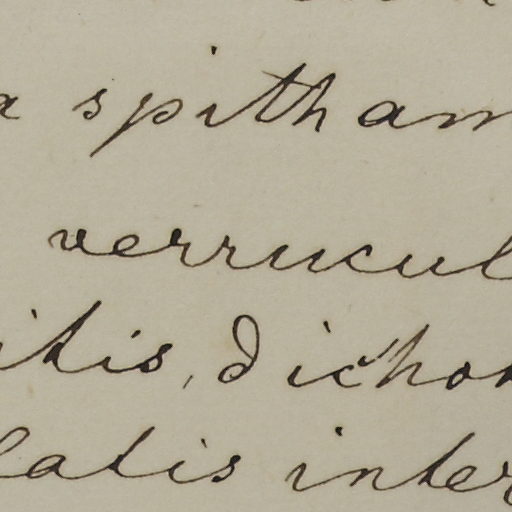 a spitham
verrucul
itis, dichot
latis inter